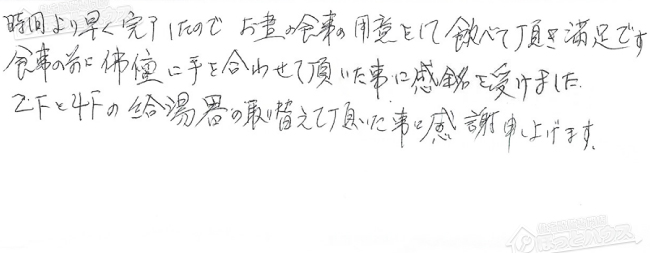 時間より早く完了したので お昼の食事の用意をして飲べて頂き満足です
食事の前に佛壇に手を合わせて頂いた事に感銘を受けました.
2Fと4Fの給湯器の取り替えて頂いた事に感謝申し上げます.